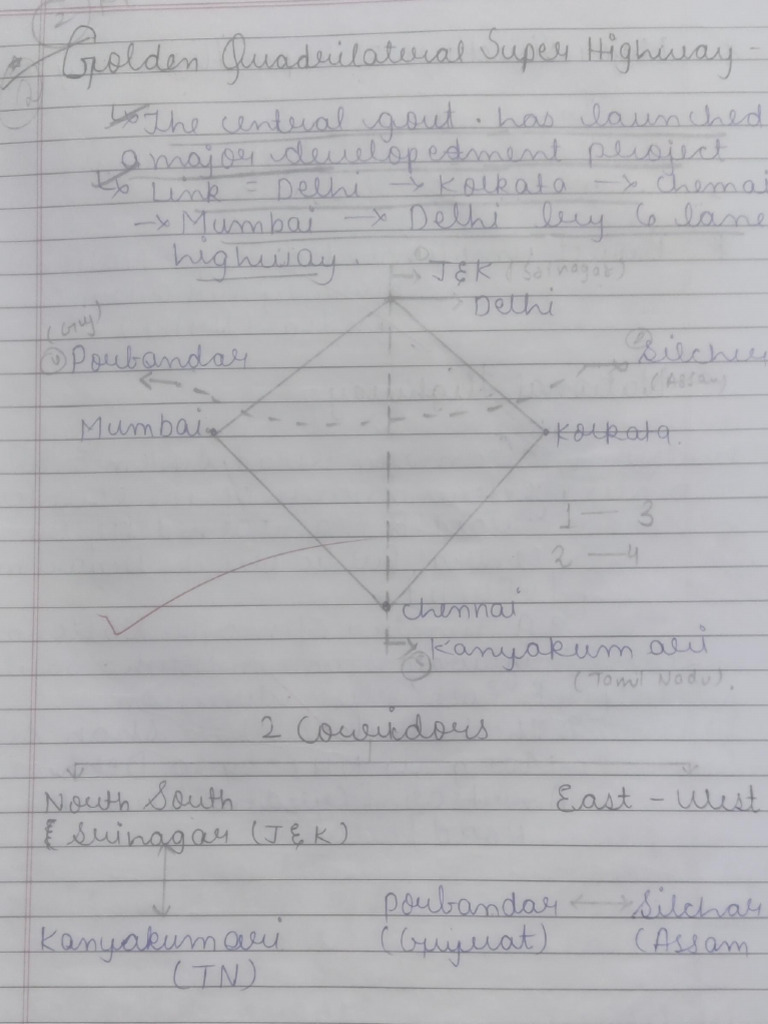 * Golden Quadrilateral Super Highway -
↳ The central govt. has launched
a major developedment project
↳ Link = Delhi → Kolkata → Chennai
→ Mumbai → Delhi by 6 lane
highway.
→ J&K (Srinagar)
Delhi
(Guj)
Porbandar
Silchar
(Assam)
Mumbai
Kolkata.
1 — 3
2 — 4
Chennai
→ Kanyakumari
(Tamil Nadu).
2 Corridors
North South
East - West
Srinagar (J&K)
Porbandar ↔ Silchar
Kanyakumari (Gujurat) (Assam
(TN)